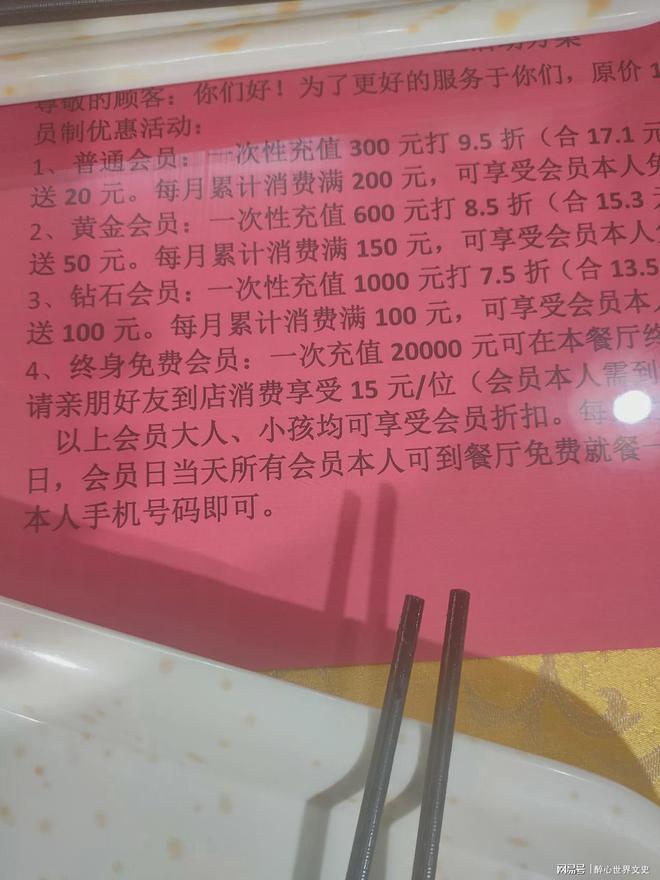 尊敬的顾客：你们好！为了更好的服务于你们，原价 1
员制优惠活动：
1、普通会员：一次性充值 300 元打 9.5 折（合 17.1 元
送 20 元。每月累计消费满 200 元，可享受会员本人免
2、黄金会员：一次性充值 600 元打 8.5 折（合 15.3
送 50 元。每月累计消费满 150 元，可享受会员本人
3、钻石会员：一次性充值 1000 元打 7.5 折（合 13.5
送 100 元。每月累计消费满 100 元，可享受会员本人
4、终身免费会员：一次充值 20000 元可在本餐厅终
请亲朋好友到店消费享受 15 元/位（会员本人需到
以上会员大人、小孩均可享受会员折扣。每
日，会员日当天所有会员本人可到餐厅免费就餐一
本人手机号码即可。
网易号 | 醉心世界文史